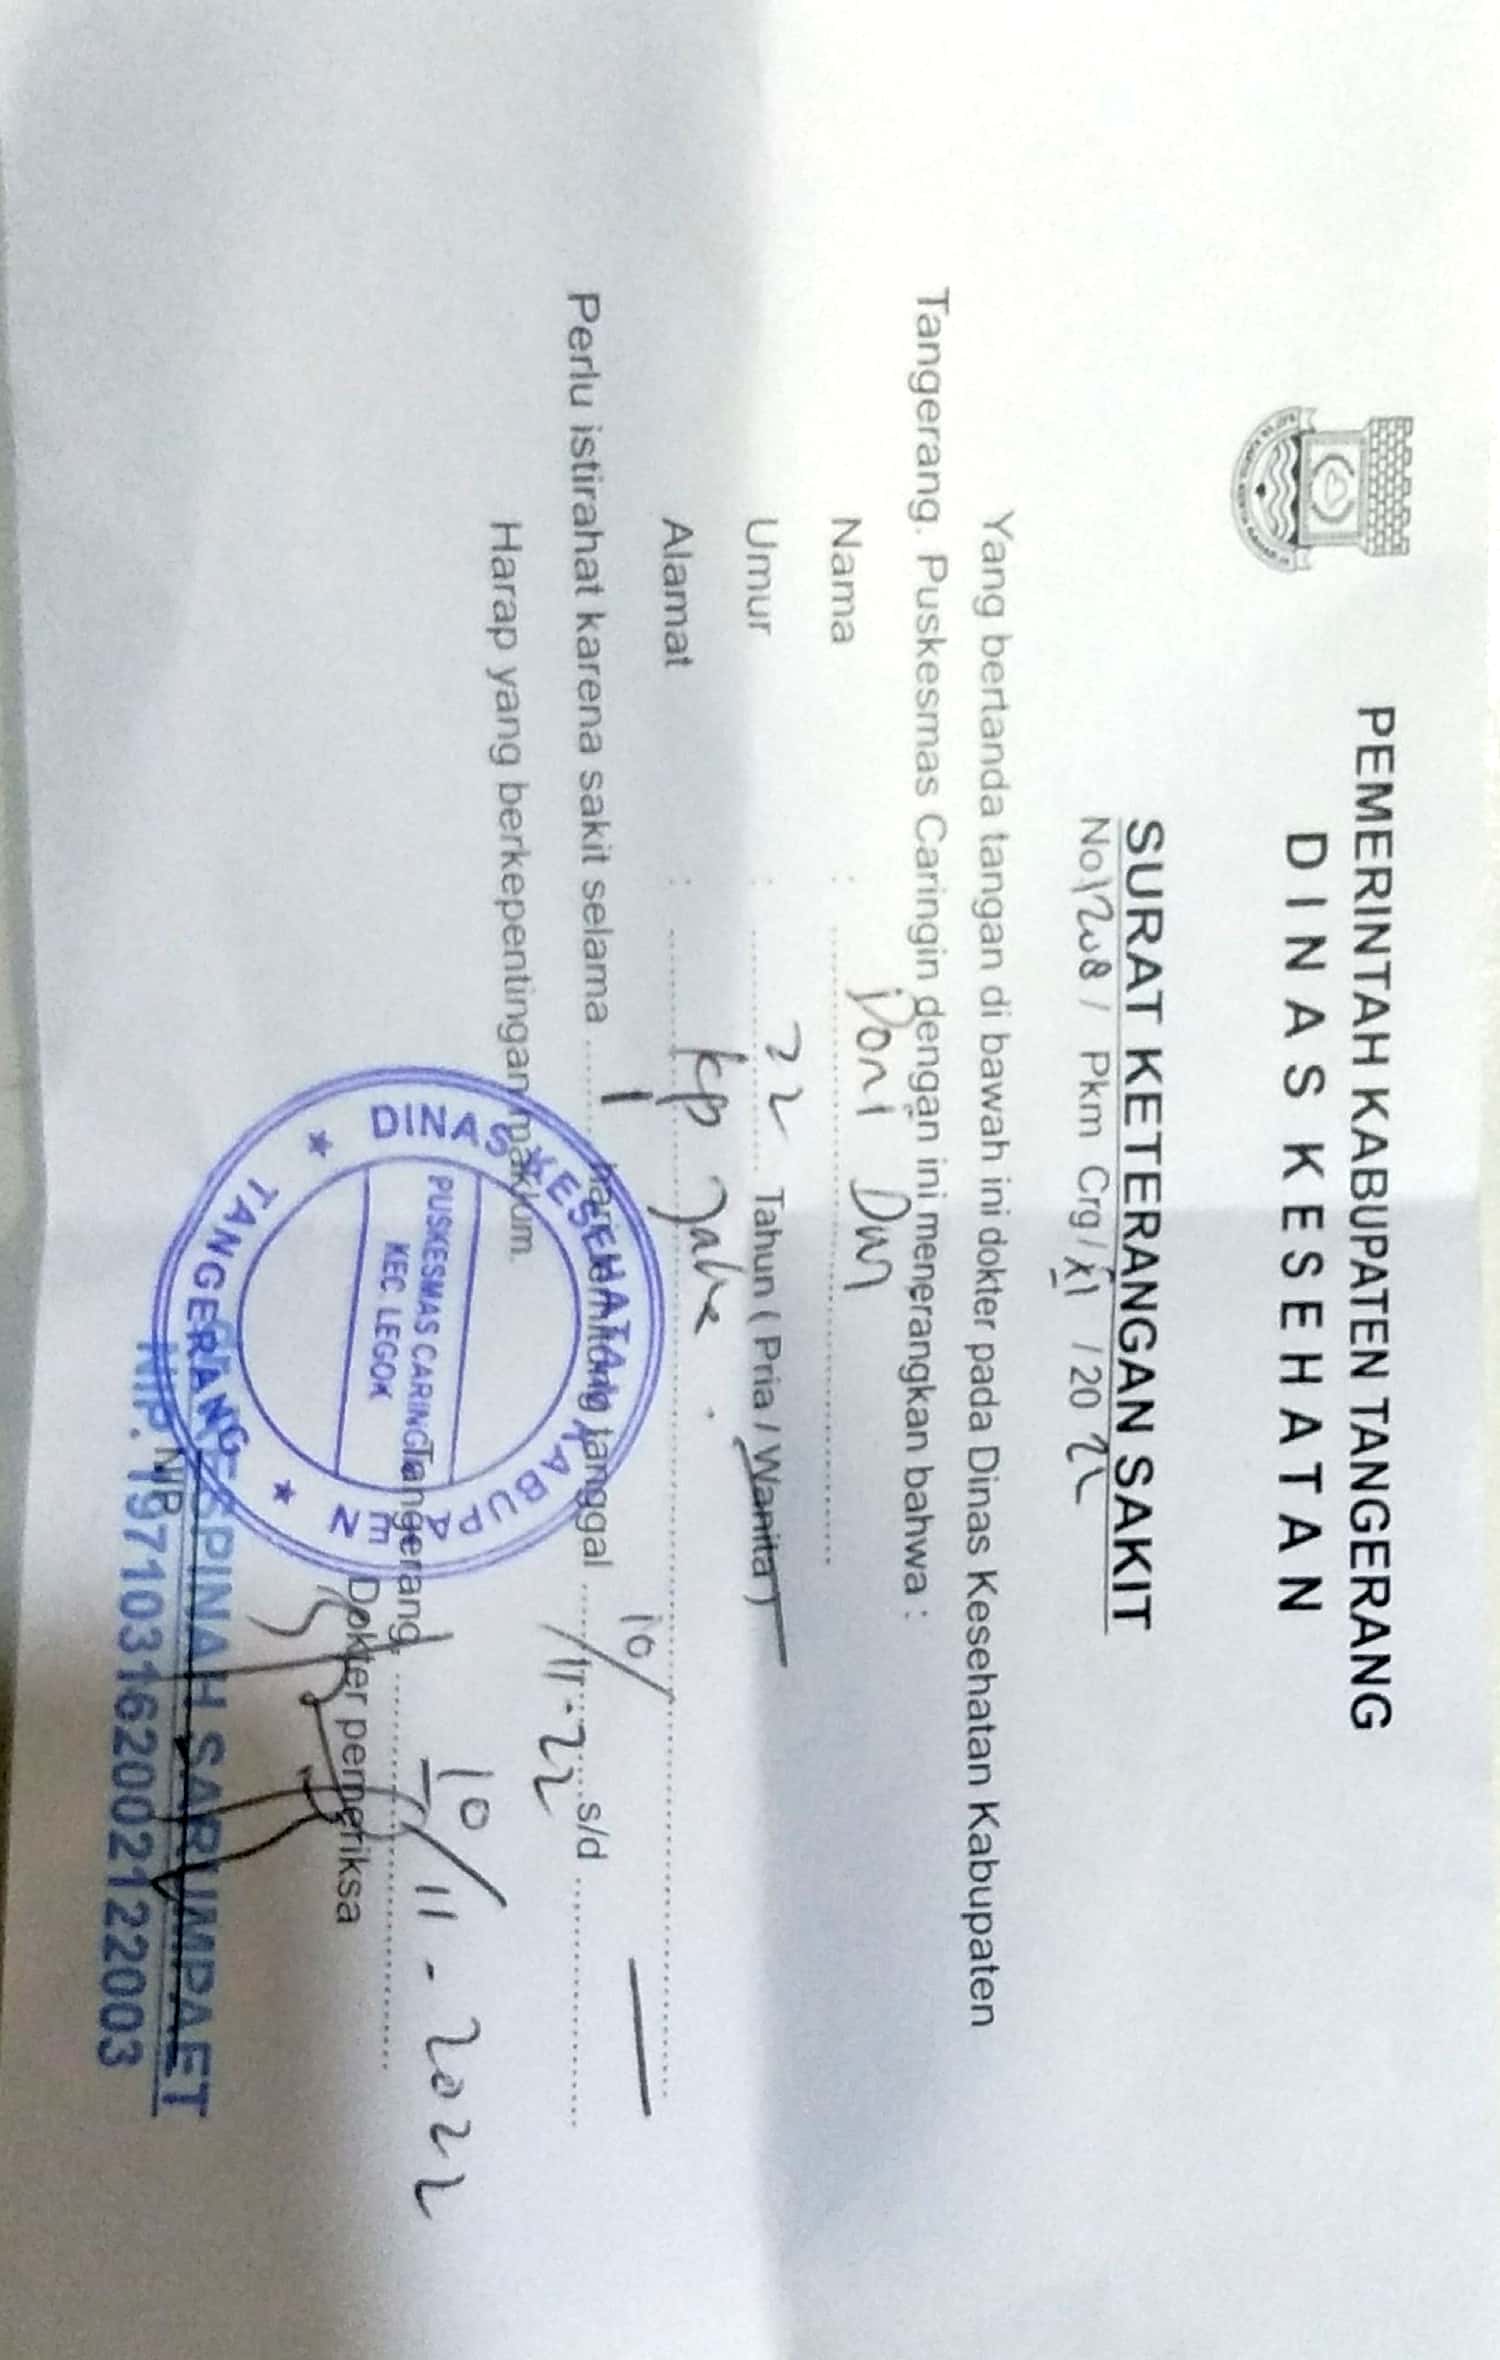 PEMERINTAH KABUPATEN TANGERANG
DINAS KESEHATAN
SURAT KETERANGAN SAKIT
No / Pkm Crg / XI / 2022
Yang bertanda tangan di bawah ini dokter pada Dinas Kesehatan Kabupaten
Tangerang. Puskesmas Caringin dengan ini menerangkan bahwa :
Nama : Doni
Umur : 22 Tahun ( Pria / Wanita )
Alamat : Kp Jaha .
Perlu istirahat karena sakit selama 1 hari terhitung tanggal 10/11-22 s/d —
Harap yang berkepentingan maklum.
Tangerang, 10/11-2022
Dokter pemeriksa
DINAS KESEHATAN KABUPATEN
TANGERANG
PUSKESMAS CARINGIN
KEC LEGOK
SARUMPAET
NIP.
NIP. 197103162002122003